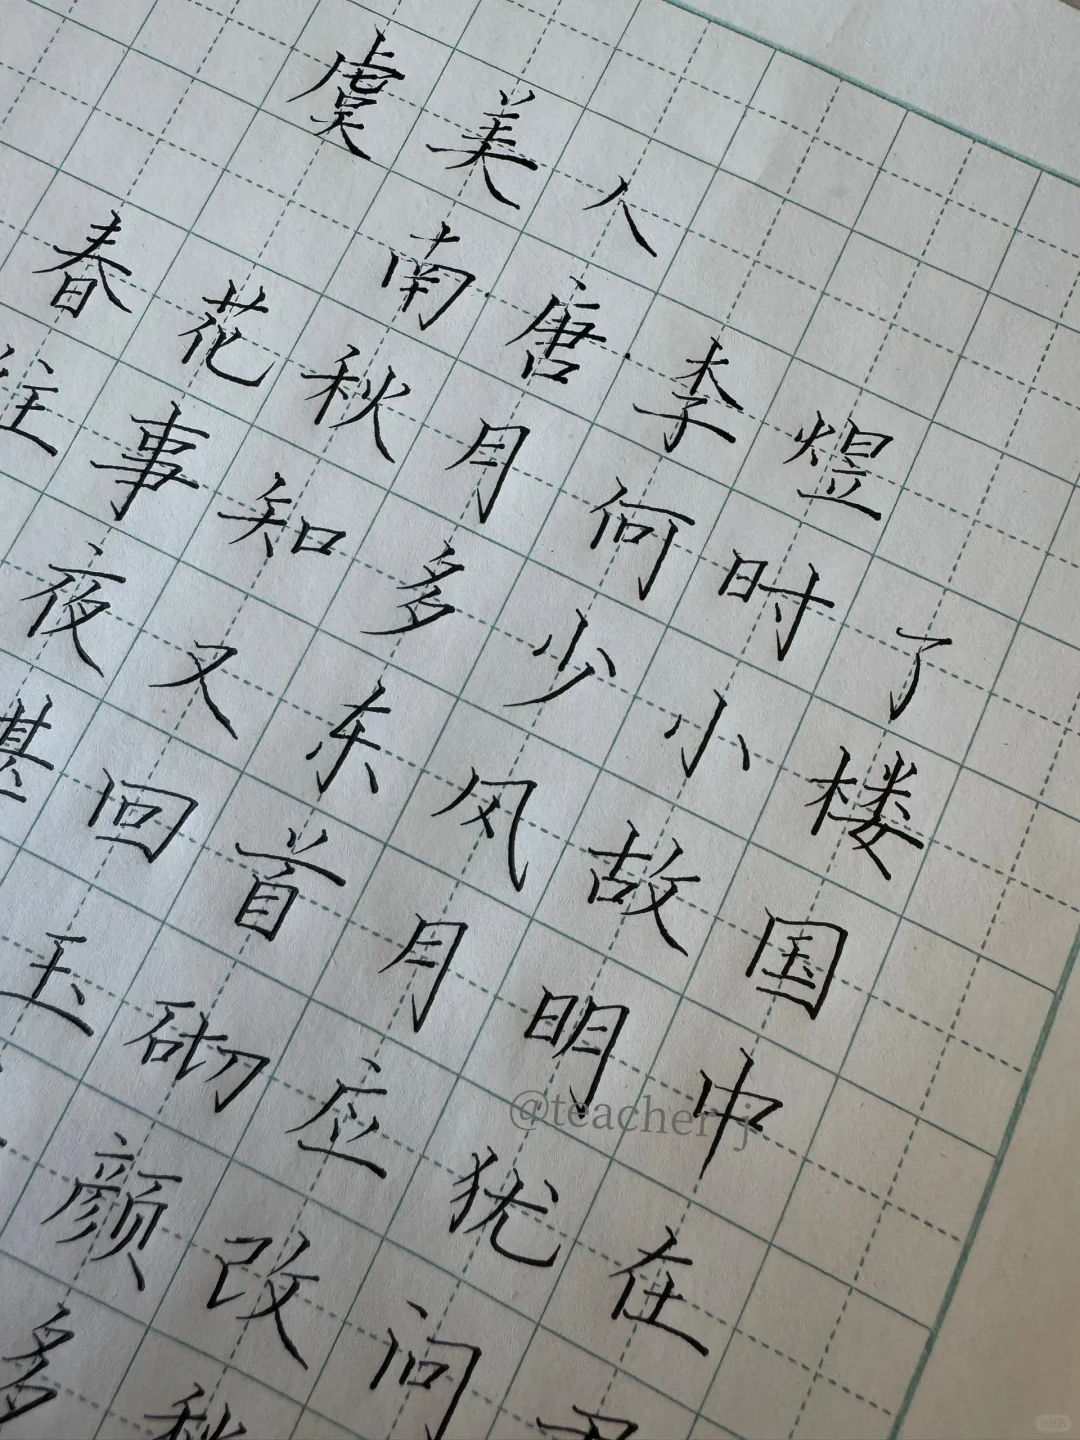 虞美人
南唐·李煜
春花秋月何时了
往事知多少小楼
夜又东风故国
回首月明中
玉砌应犹在
颜改问
多
@teacher j